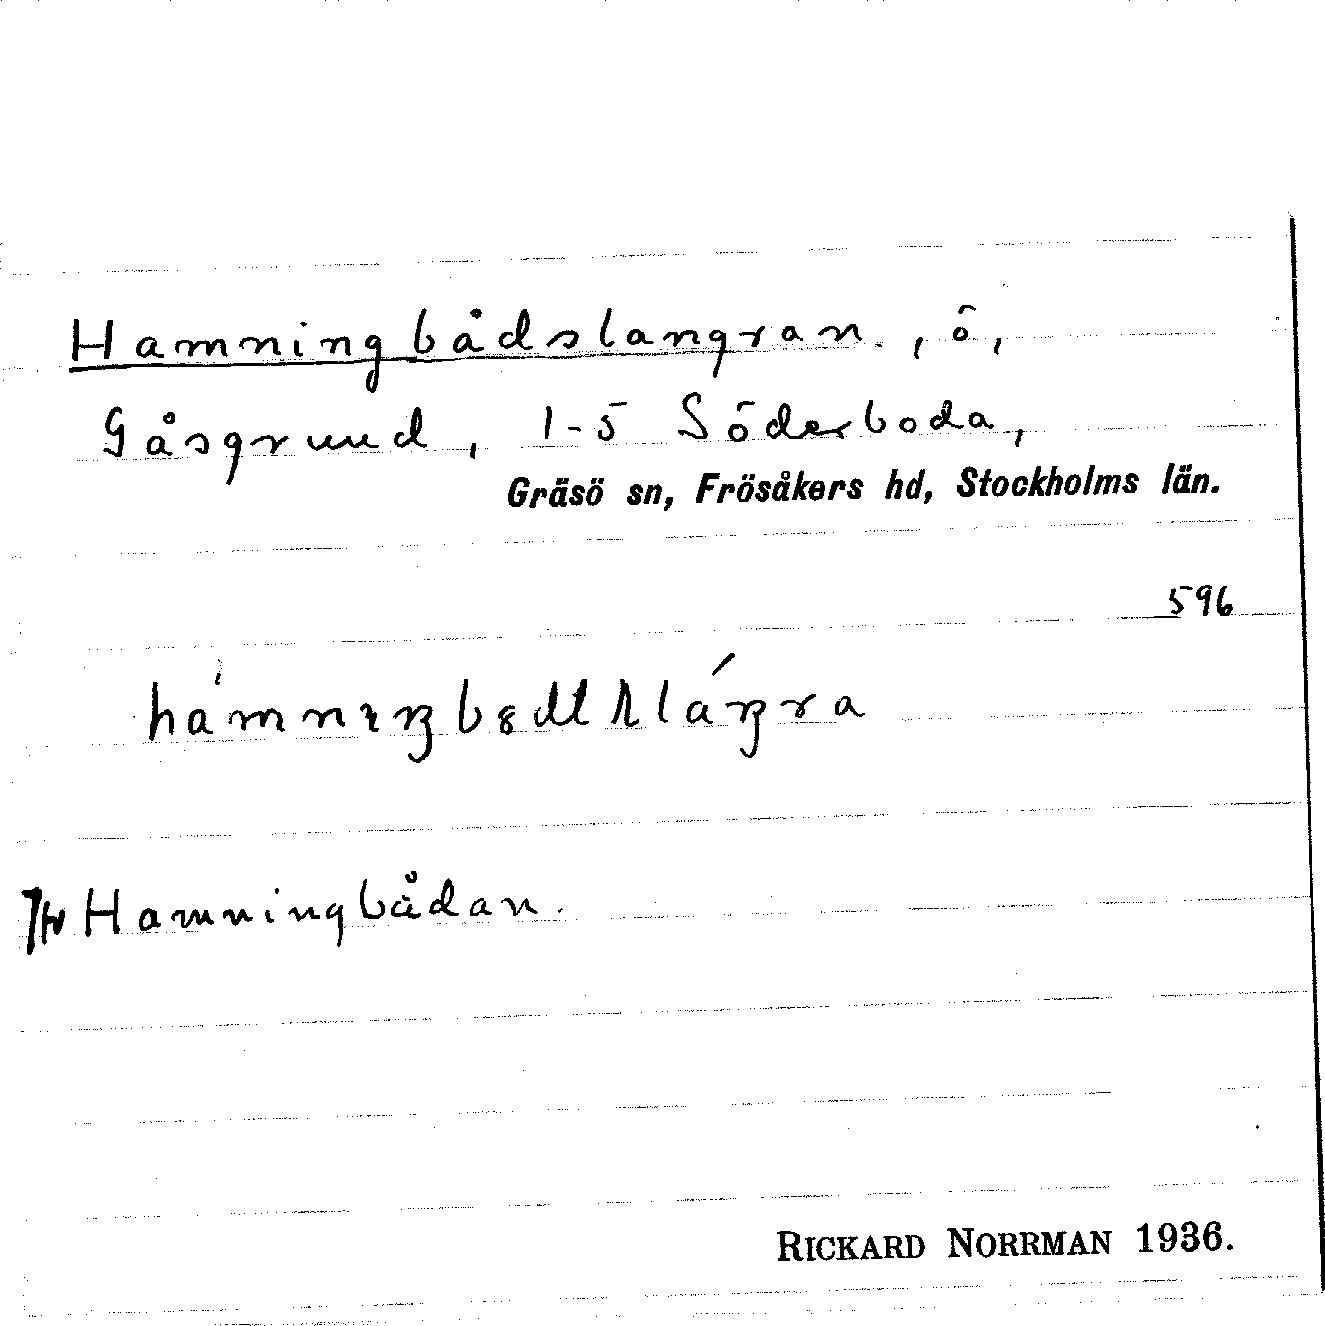 Hamningbådslangran, ö,
Gåsgrund, 1-5 Söderboda,
Gräsö sn, Frösåkers hd, Stockholms län.
596
Hamningbådan.
RICKARD NORRMAN 1936.